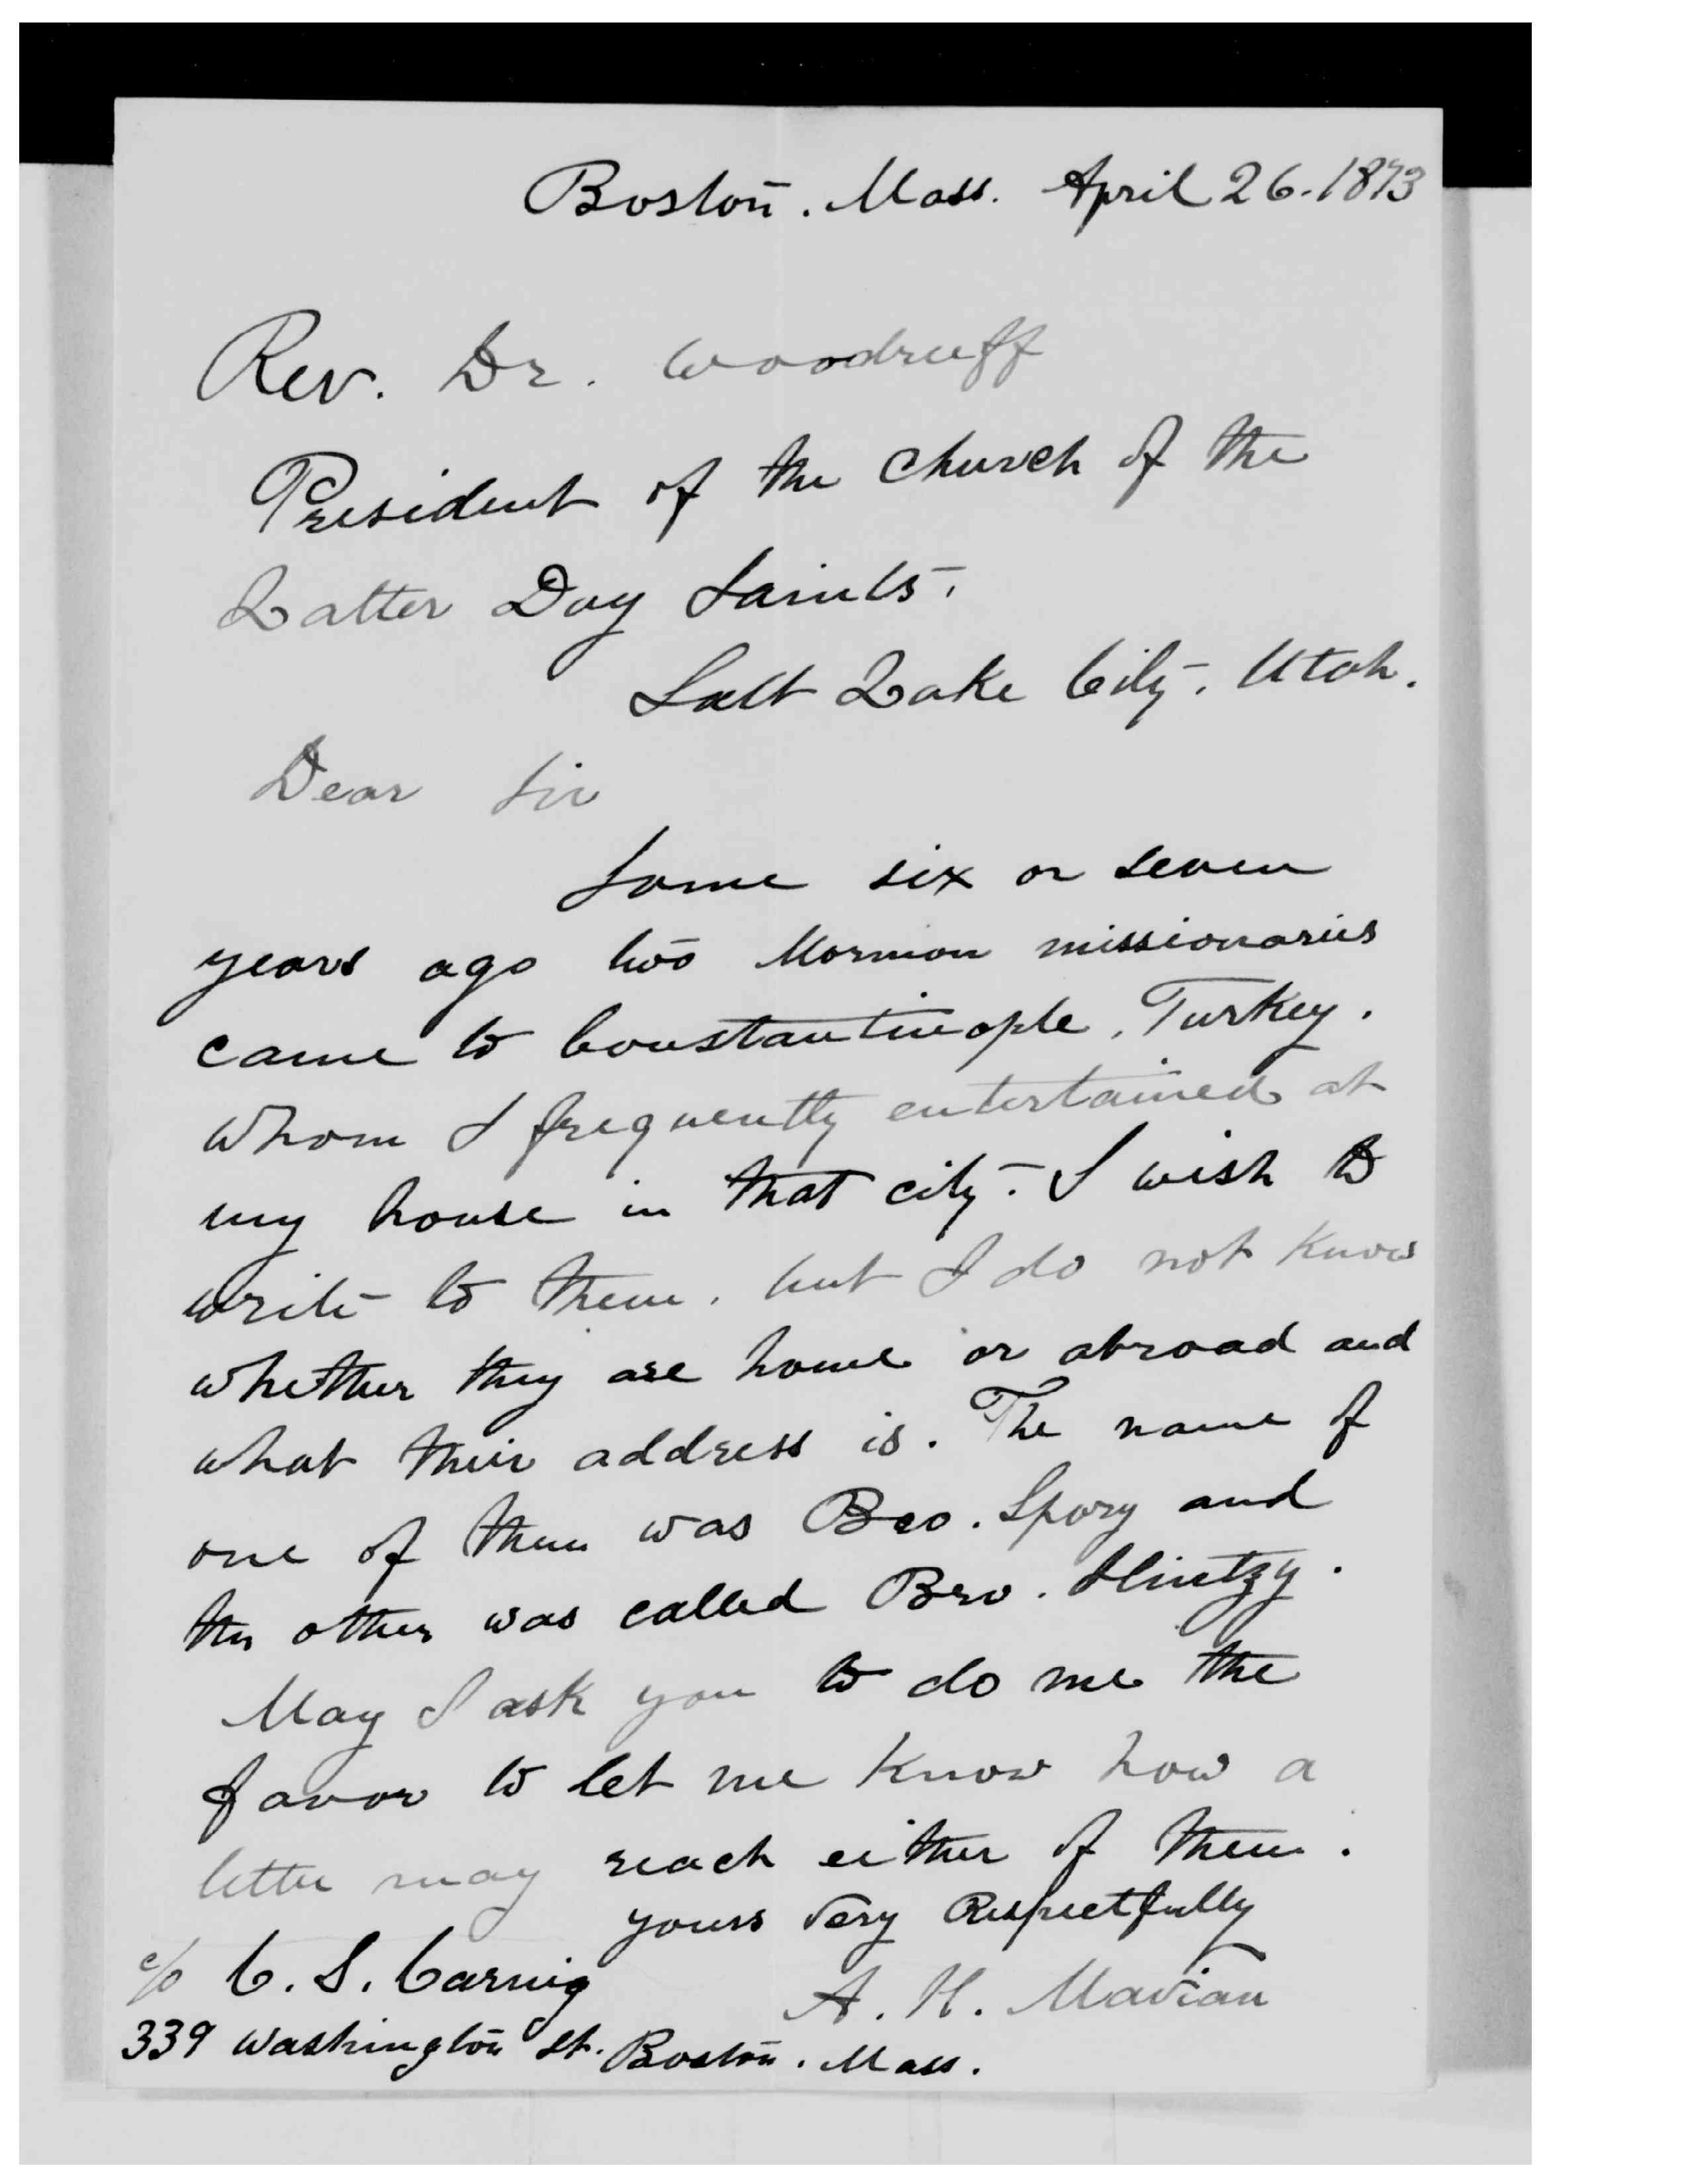 Boston. Mass. April 26. 1893
Rev. Dr. Woodruff
President of the Church of the
Latter Day Saints.
Salt Lake City. Utah.
Dear Sir
Some six or seven
years ago two Mormon missionaries
came to Constantinople, Turkey.
whom I frequently entertained at
my house in that city. I wish to
write to them, but I do not know
whether they are home or abroad and
what their address is. The name of
one of them was Bro. Spory and
the other was called Bro. Hintzy.
May I ask you to do me the
favor to let me know how a
letter may reach either of them.
yours very Respectfully
c/o C. S. Carnig
A. H. Mavian
339 Washington St. Boston. Mass.